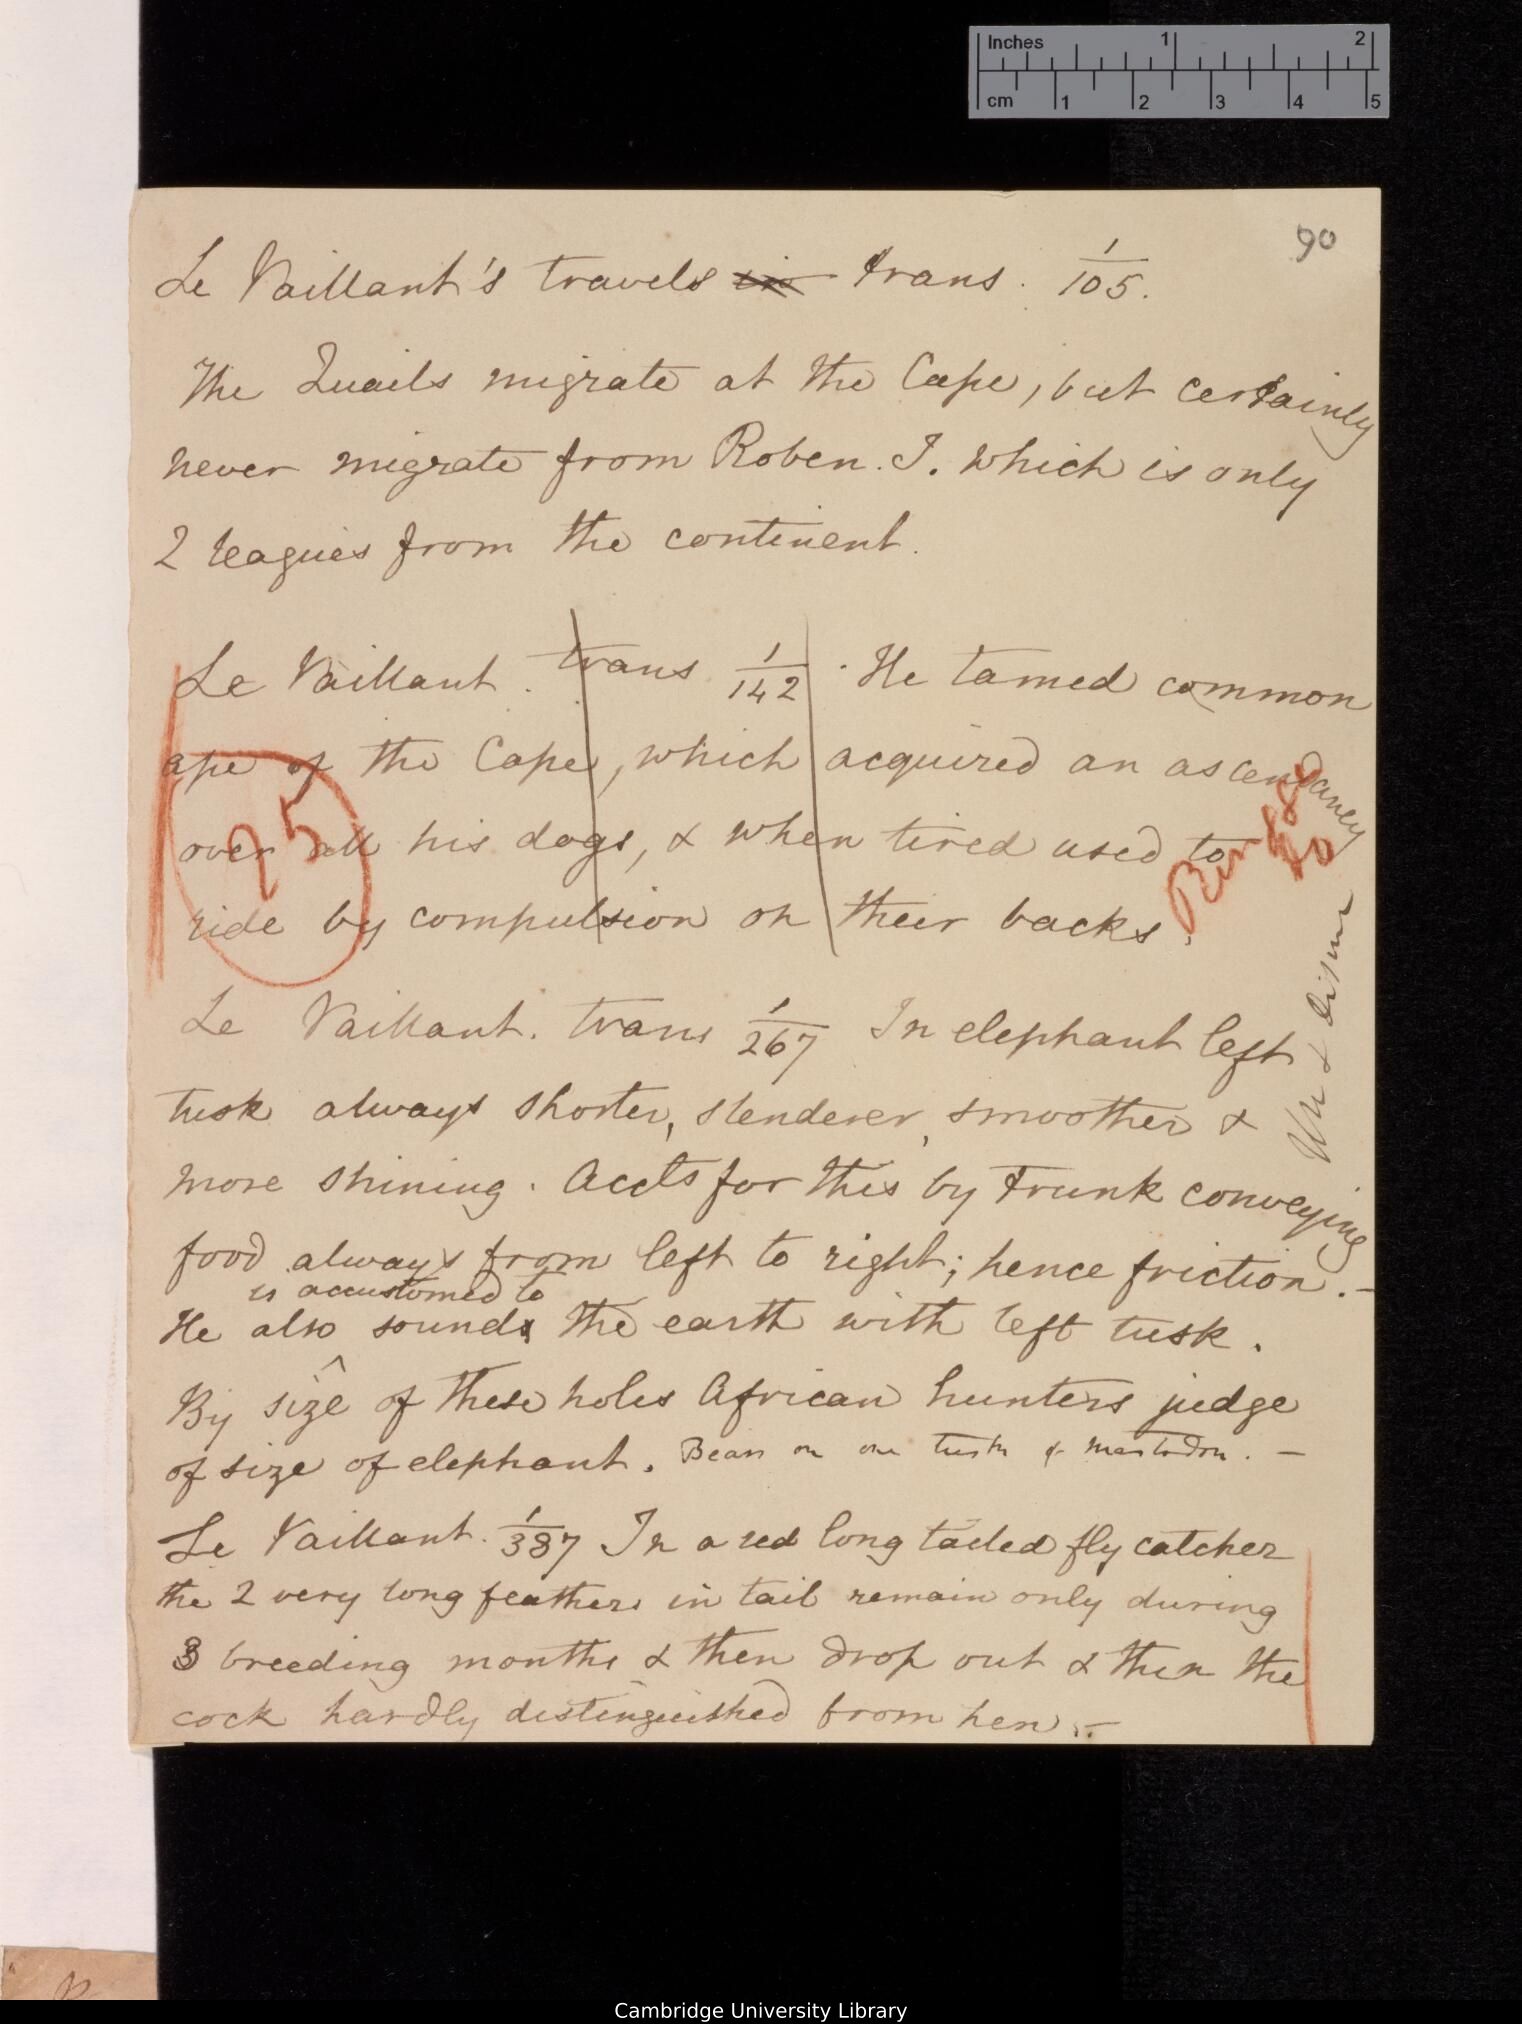 Inches 1 2
cm 1 2 3 4 5
90
Le Vaillant's travels in trans. 1/105.
The Quails migrate at the Cape, but certainly
never migrate from Roben. I. which is only
2 leagues from the continent.
Le Vaillant. trans 1/142. He tamed common
ape of the Cape, which acquired an ascendancy
over all his dogs, & when tired used to
ride by compulsion on their backs.
25
Le Vaillant. trans 1/267 In elephant left
tusk always shorter, slenderer, smoother &
more shining. Accts for this by trunk conveying
food always from left to right; hence friction. —
is accustomed to
He also sounds the earth with left tusk.
By size of these holes African hunters judge
of size of elephant. Bears on one tusk of mastodon. —
Le Vaillant. 1/387 In a red long tailed fly catcher
the 2 very long feathers in tail remain only during
3 breeding months & then drop out & then the
cock hardly distinguished from hen. —
Use & Disuse
Cambridge University Library